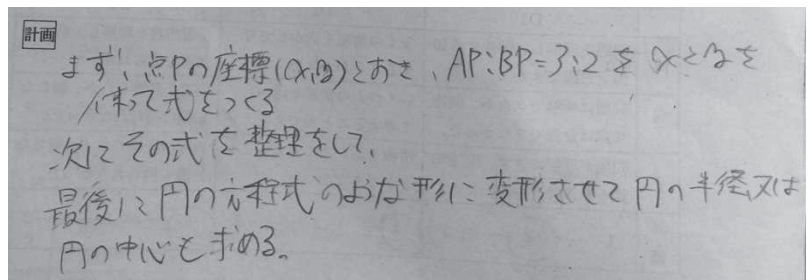 計画
まず、点Pの座標(x,y)とおき、AP:BP=3:2をxとyを
使って式をつくる
次にその式を整理をして、
最後に円の方程式のような形に変形させて円の半径又は
円の中心も求める。